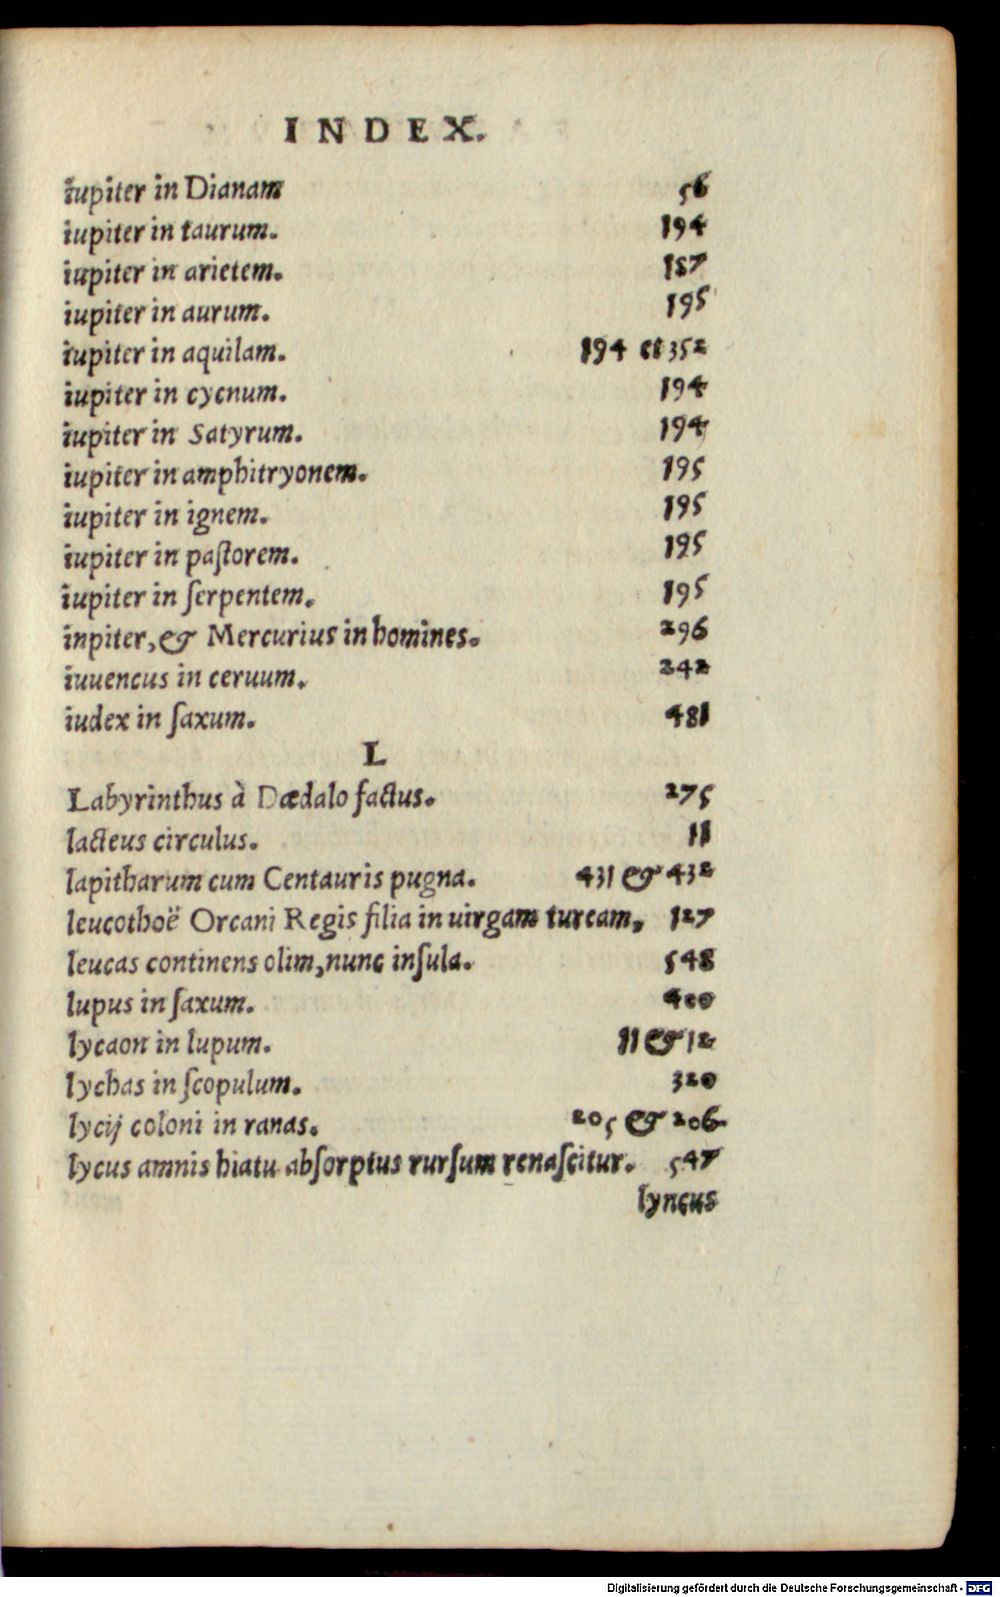 INDEX.
iupiter in Dianam 56
iupiter in taurum. 194
iupiter in arietem. 187
iupiter in aurum. 195
iupiter in aquilam. 194 et 352
iupiter in cycnum. 194
iupiter in Satyrum. 194
iupiter in amphitryonem. 195
iupiter in ignem. 195
iupiter in paſtorem. 195
iupiter in ſerpentem. 195
inpiter, & Mercurius in homines. 296
iuuencus in ceruum. 242
iudex in ſaxum. 481
L
Labyrinthus à Dædalo factus. 275
lacteus circulus. 11
lapitharum cum Centauris pugna. 431 & 432
leucothoë Orcani Regis filia in uirgam turcam, 127
leucas continens olim, nunc inſula. 548
lupus in ſaxum. 400
lycaon in lupum. 11 & 12
lychas in ſcopulum. 320
lycij coloni in ranas. 205 & 206
lycus amnis hiatu abſorptus rurſum renaſcitur. 547
lyncus
Digitalisierung gefördert durch die Deutsche Forschungsgemeinschaft - DFG